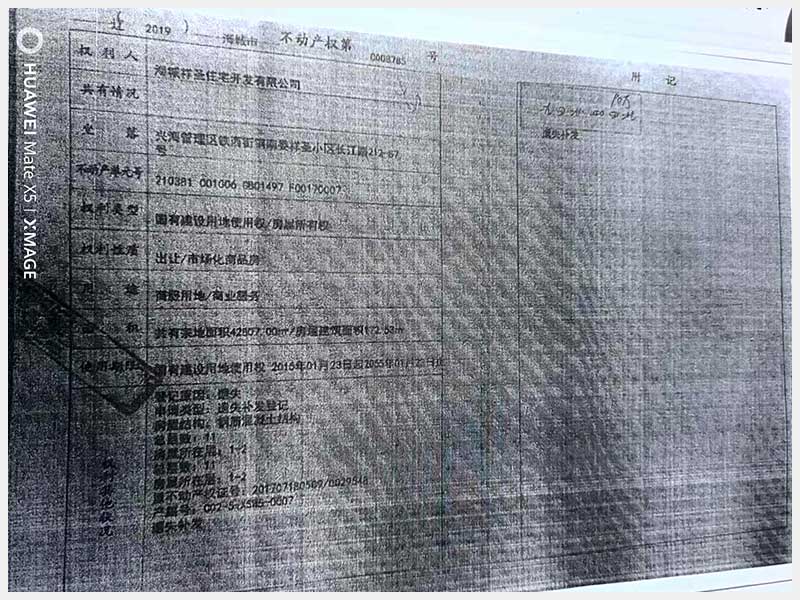 辽 (2019) 海城市 不动产权第 0008765 号
附 记
权利人 海城祥圣住宅开发有限公司
共有情况
遗失补发
坐落 兴海管理区铁西街 委祥圣小区长江路212-67
号
不动产单元号 210381 001006 GB01497 F00170007
权利类型 国有建设用地使用权/房屋所有权
权利性质 出让/市场化商品房
用途 商服用地/商业服务
面积 共有宗地面积42507.00㎡/房屋建筑面积172.53㎡
使用期限 国有建设用地使用权 2015年01月23日起2055年01月 日止
权利其他状况
登记原因：遗失
申请类型：遗失补发登记
房屋结构：钢筋混凝土结构
总层数：11
房屋所在层：1-2
总层数：11
房屋所在层：1-2
原不动产权证号：201707180509/0029548
产籍号：002-5-
遗失补发
HUAWEI Mate X5 | XMAGE